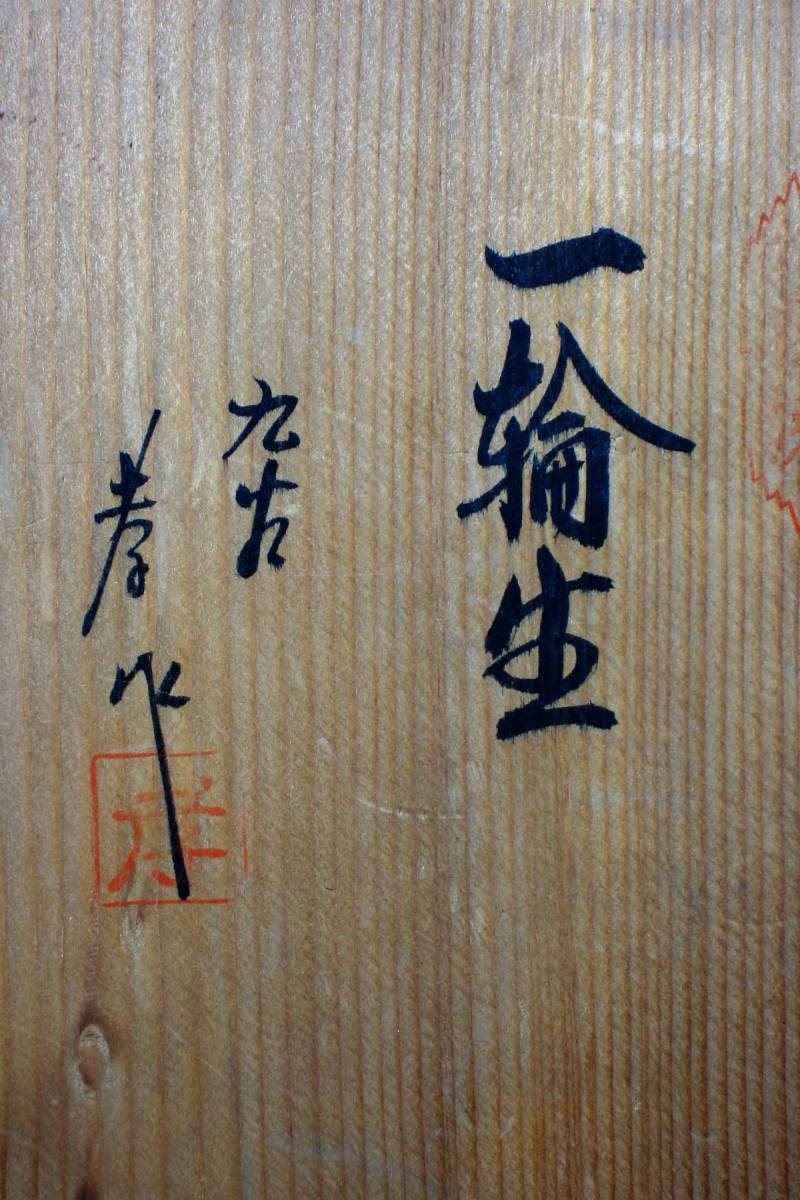 一輪生
九谷
孝作
孝